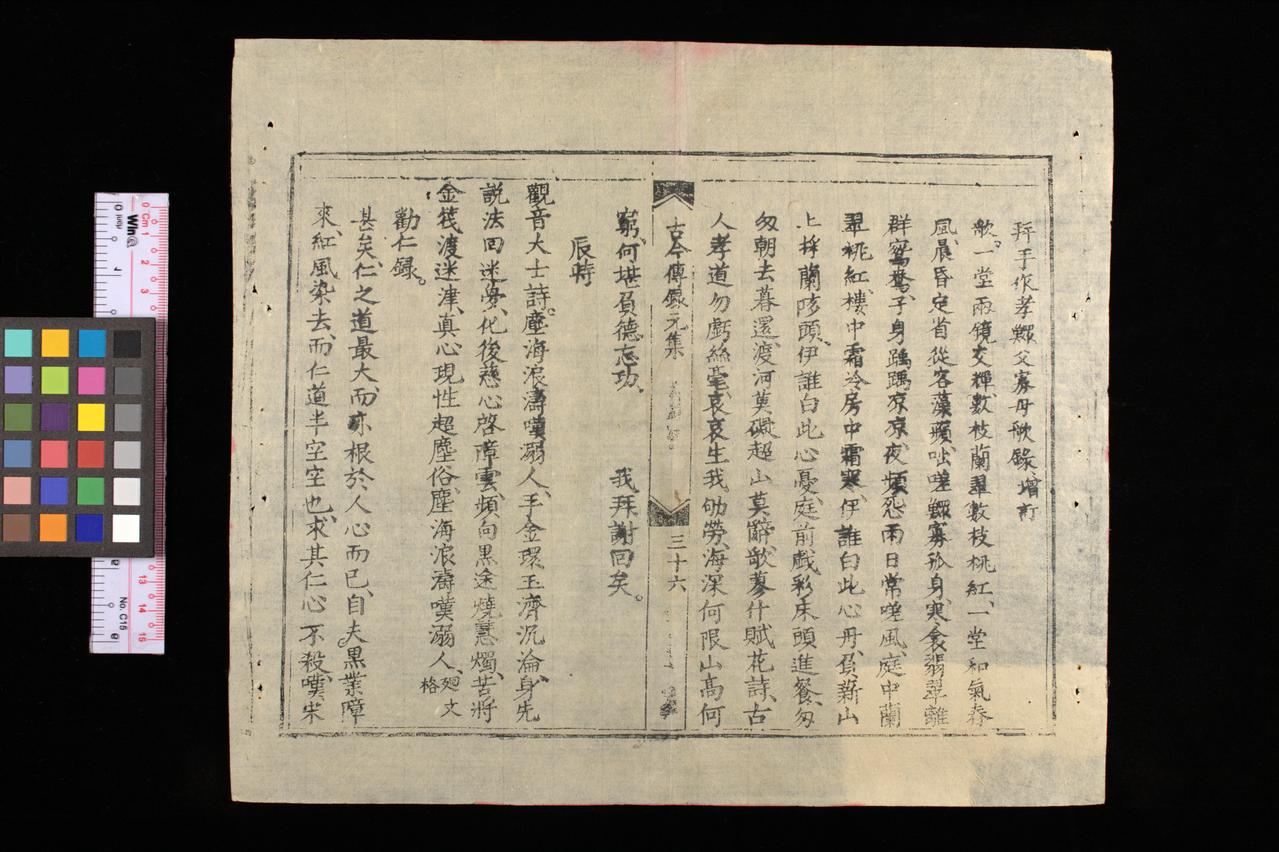 拜手作孝鰥父寡母歌錄、增前
歌。一堂兩鏡交輝、數枝蘭翠數枝桃紅、一堂和氣春
風、晨昏定省從容藻蘋、吡嗟鰥寡孤身、寒衾翡翠離
群鴛鴦、孑身踽踽凉凉、夜煩怨雨日常嗟風、庭中蘭
翠桃紅、樓中霜冷房中霜寒、伊誰白此心丹、負薪山
上採蘭陔頭、伊誰白此心憂、庭前戲彩床頭進餐、匆
匆朝去暮還、渡河莫礙超山莫辭、歌蓼什賦花詩、古
人孝道勿虧絲毫、哀哀生我劬勞、海深何限山高何
窮、何堪負德忘功。 我拜謝回矣。
辰時
觀音大士詩。塵海浪濤嘆溺人、手金環玉濟沉淪、身先
説法回迷夢、化後慈心啓障雲、頻向黑途燒慧燭、苦將
金筏渡迷津、真心現性超塵俗、塵海浪濤嘆溺人、廻文格
勸仁錄。
甚矣、仁之道最大、而亦根於人心而已、自夫黑業障
來、紅風染去、而仁道半空空也、求其仁心不殺、嘆宋
古今傳錄元集
三十六